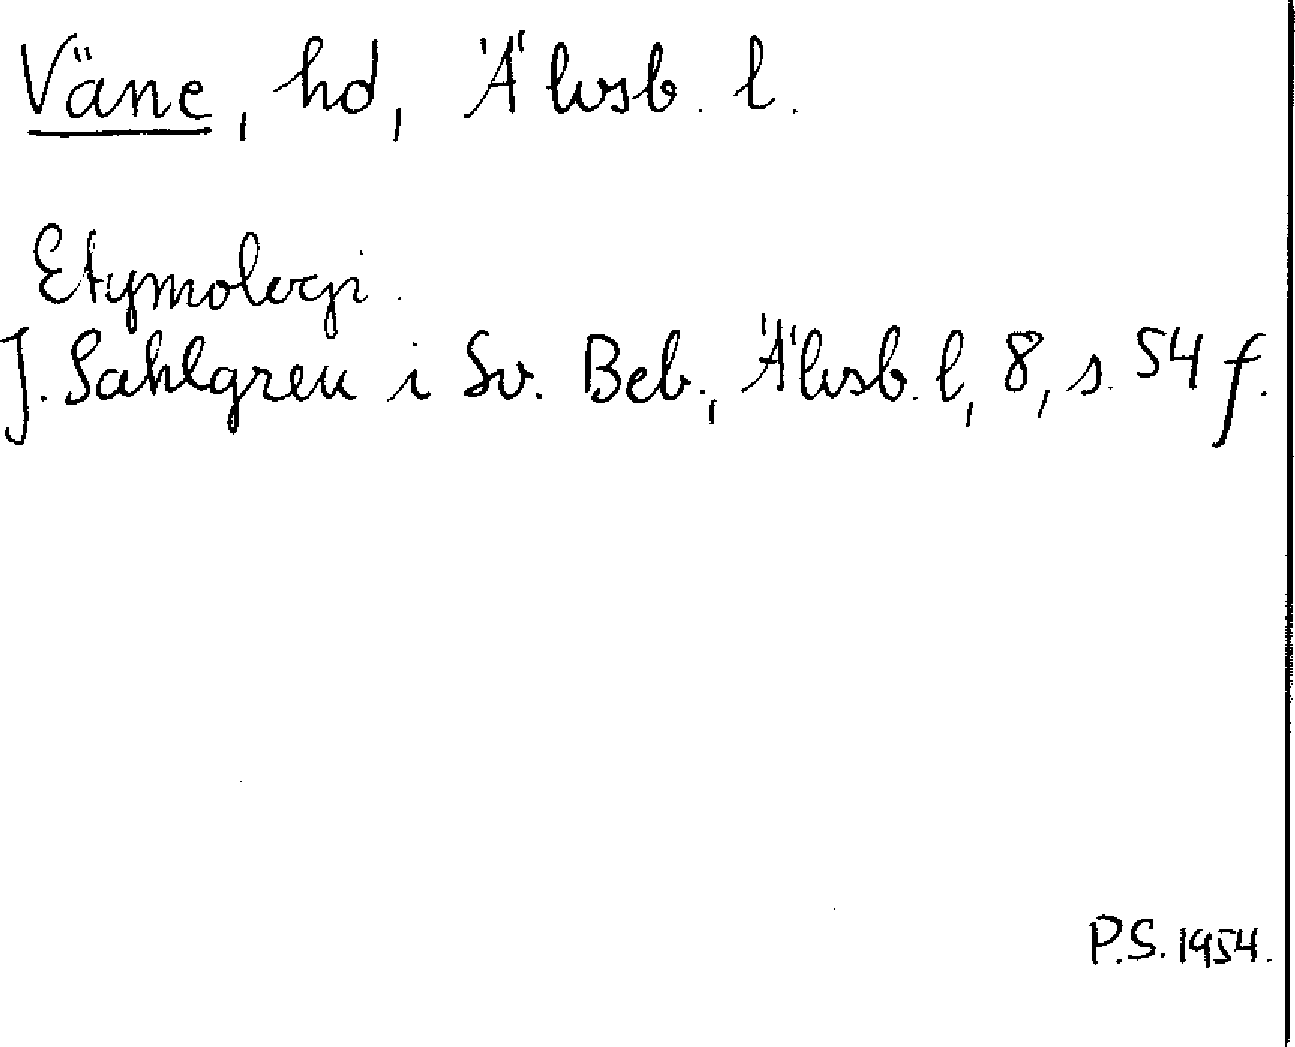 Väne, hd, Älvsb. l.
Etymologi.
J. Sahlgren i Sv. Beb., Älvsb. l, 8, s. 54 f.
P.S. 1954.